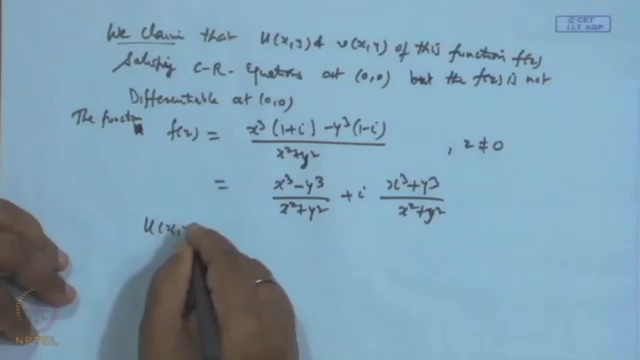 © CET
I.I.T. KGP
We claim that u(x,y) & v(x,y) of this function f(z)
Satisfing C-R- Equations at (0,0) but the f(z) is not
Differentiable at (0,0)
The functn f(z) = x³(1+i) - y³(1-i) / x²+y² , z ≠ 0
= x³-y³ / x²+y² + i x³+y³ / x²+y²
u(x,y
NPTEL